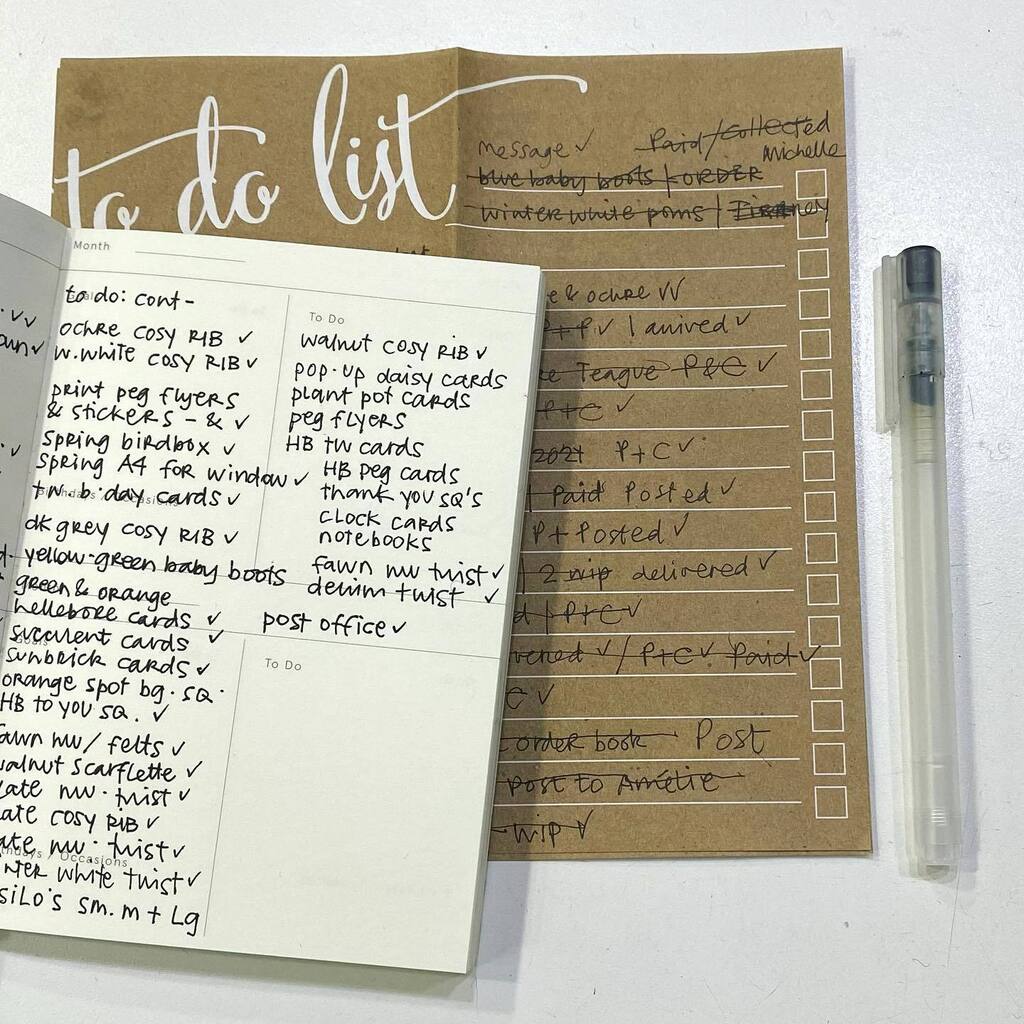 to do list
message ✓ Paid/Collected
Michelle
blue baby boots | ORDER
winter white poms |
& ochre VV
P+P ✓ 1 arrived ✓
Teague P&C ✓
P+C ✓
2021 P+C ✓
| Paid Posted ✓
P + Posted ✓
| 2 wip delivered ✓
| P+C ✓
✓ / P+C ✓ Paid ✓
✓
order book Post
post to Amélie
- wip ✓
Month
to do: cont -
ochre cosy RIB ✓
w.white cosy RIB ✓
print peg flyers
& stickers - & ✓
spring birdbox ✓
spring A4 for window ✓
Birthdays / Occasions
tw. b.day cards ✓
dk grey cosy RIB ✓
yellow-green baby boots
green & orange
hellebore cards ✓
succulent cards ✓
Goals
sunbrick cards ✓
orange spot bg. sq.
HB to you sq. ✓
fawn nw/ felts ✓
walnut scarflette ✓
nw. twist ✓
cosy RIB ✓
nw. twist ✓
Birthdays / Occasions
white twist ✓
sm. m + Lg
To Do
walnut cosy RIB ✓
pop-up daisy cards
plant pot cards
peg flyers
HB tw cards
HB peg cards
thank you sq's
clock cards
notebooks
fawn nw twist ✓
denim twist ✓
post office ✓
To Do